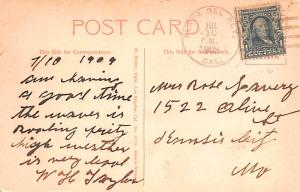 POST CARD.
This Side for Correspondence.
This Side for the Address.
DEL REY
JUL
10
P.M.
1909
CAL.
7/10 1909
am having
a good time
the waves is
roaling prity
high wether
is very Cool
W H Taylor
Miss Rose
1522 Olive
St
Mo